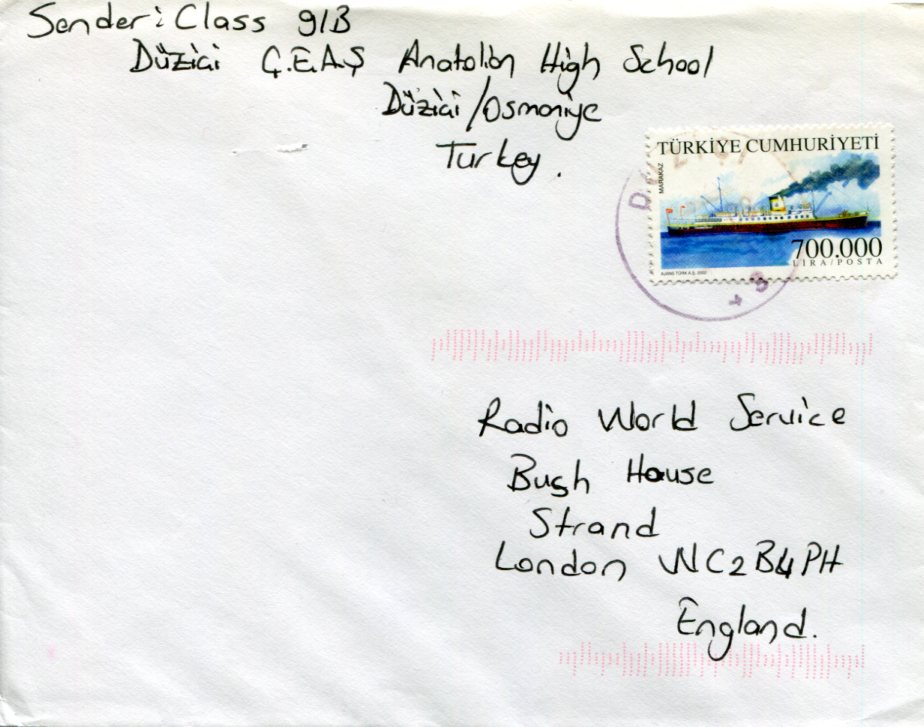 Sender: Class 9/B
Düziçi Ç.E.A.Ş Anatolian High School
Düziçi/Osmaniye
Turkey.
TÜRKİYE CUMHURİYETİ
MARAKAZ
700.000
LİRA/POSTA
AJANS TÜRK A.Ş. 2002
Radio World Service
Bush House
Strand
London WC2B4PH
England.